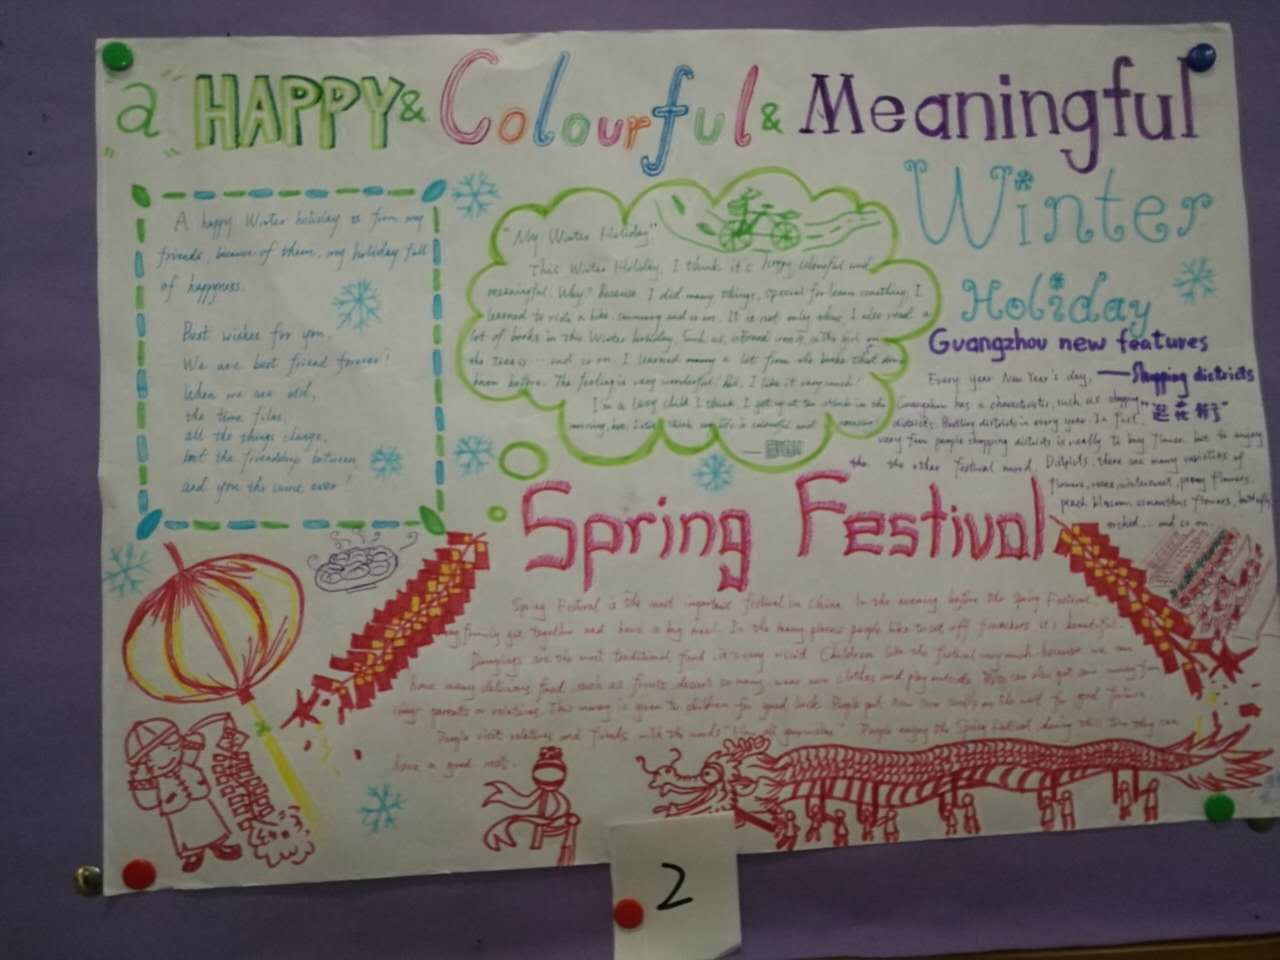 a HAPPY & Colourful & Meaningful
Winter
Holiday
A happy Winter holiday is from my
friends, because of them, my holiday full
of happyness.
Best wishes for you.
We are best friend forever!
When we are old,
the time flies,
all the things change,
but the friendship between
and you the same ever!
"My Winter Holiday"
This Winter Holiday, I think it's happy, colourful and
meaningful. Why? Because I did many things, special for learn something, I
learned to ride a bike, and so on. It is not only that, I also read a
lot of books in this Winter holiday. Such as,
and so on. I learned many a lot from the books that
know before. The feeling is very wonderful! But, I like it very much!
I'm a lazy child I think. I get up at ten in the
morning, but, I still think my life is colourful and
Guangzhou new features
Every year New Year's day, —— Shopping districts
Guangzhou has a characteristic, such as shopping "逛花街"
districts. Bustling districts in every year. In fact,
very few people shopping districts is really to buy flower, but to enjoy
the the other festival mood. Districts, there are many varieties of
flowers, roses, wintersweet, peony flowers,
peach blossom, osmanthus flowers, butterfly
orchid... and so on.
Spring Festival
Spring Festival is the most important festival in China. In the evening before the Spring Festival,
family get together and have a big meal. In the many places people like to set off firecrackers it's beautiful.
Dumplings are the most traditional food. Children like the festival very much. because we can
have many delicious food, such as fruits, desert so many, wear new clothes and play outside. We can also get some money from
parents or relatives. This money is given to children for good luck. People put New Year scrolls on the wall for good future.
People visit relatives and friends with the words "Have all your wishes". People enjoy the Spring Festival, during this time they can
have a good rest.
2